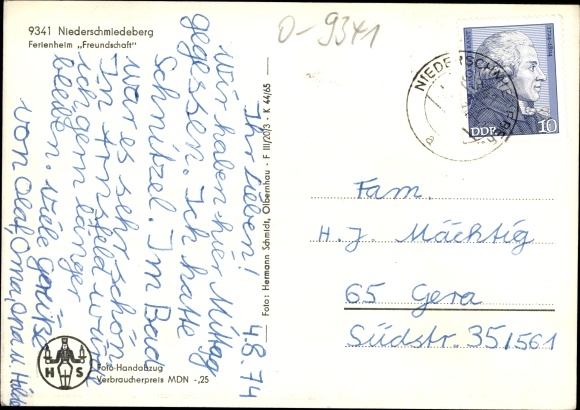 9341 Niederschmiedeberg
Ferienheim „Freundschaft"
O-9341
4.8.74
Ihr Lieben!
Wir haben hier Mittag
gegessen. Ich hatte
Schnitzel. Im Bad
war es sehr schön
In Arnsfeld würde
ich gern länger
bleiben. Viele Grüße
von Olaf, Oma, Opa u.
Foto: Hermann Schmidt, Olbernhau · F III/20/3 · K 44/65
NIEDERSCHMIEDEBERG
DDR 10
Fam.
H. J. Mächtig
65 Gera
Südstr. 35/561
H S
Foto-Handabzug
Verbraucherpreis MDN -,25